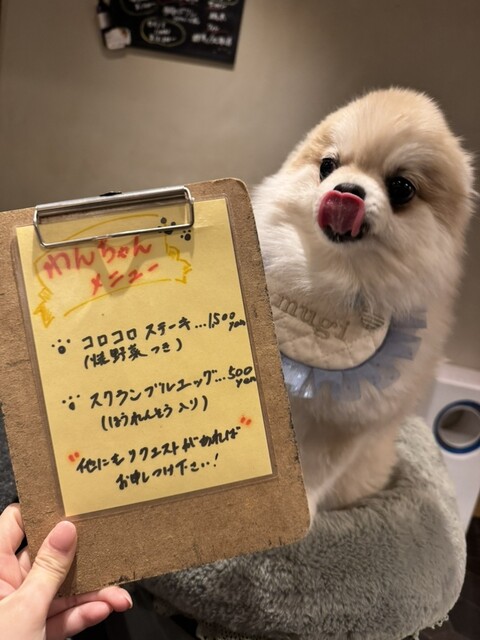 わんちゃん
メニュー
コロコロステーキ…1,500yen
(焼野菜つき)
スクランブルエッグ…500yen
(ほうれんそう入り)
"他にもリクエストがあれば"
お申しつけ下さい！
mugi